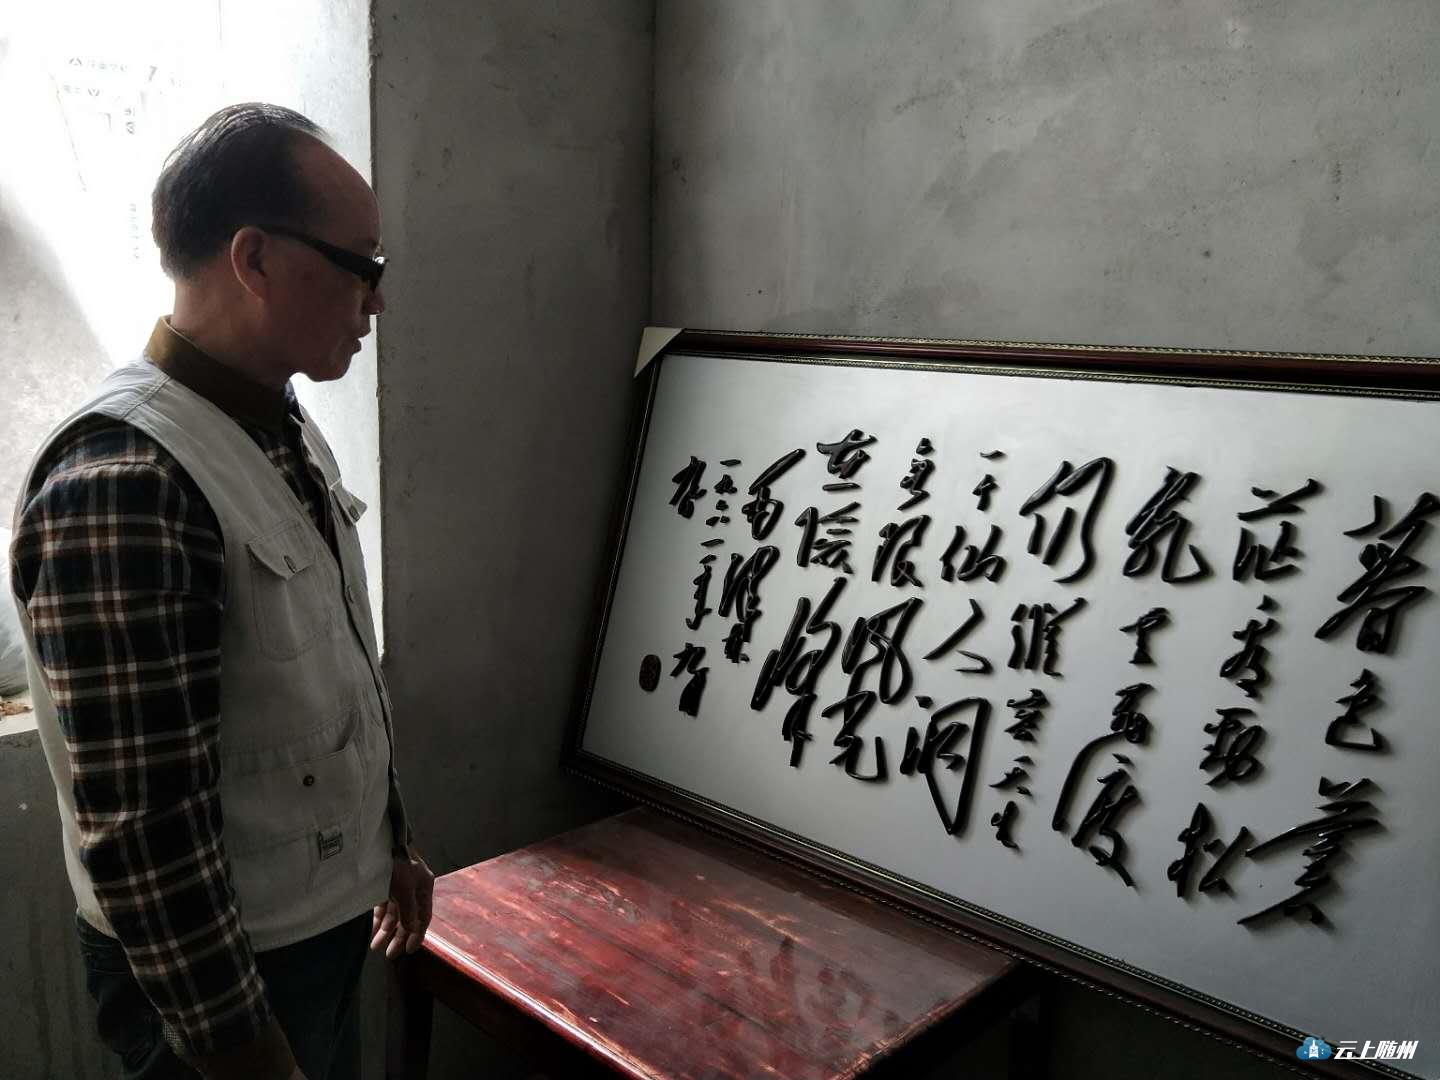 暮色苍
茫看劲松
乱云飞渡
仍從容天生
一个仙人洞
无限风光
在险峰
毛澤東
一九六一年九月
九日
云上随州